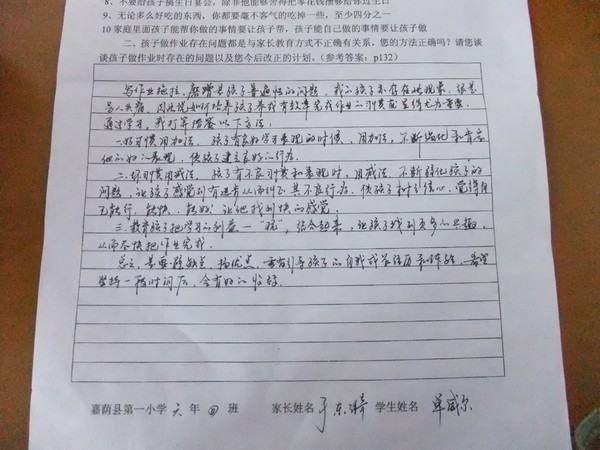 8、不要给孩子搞生日宴会，除非他能够舍得把零花钱攒够给你过生日
9、无论多么好吃的东西，你都要毫不客气的吃掉一些，至少四分之一
10 家庭里面孩子能帮你做的事情要让孩子帮，孩子能自己做的事情要让孩子做
二、孩子做作业存在问题都是与家长教育方式不正确有关系，您的方法正确吗？请您谈
谈孩子做作业时存在的问题以及您今后改正的计划。（参考答案：p132）
写作业拖拉、磨蹭是孩子普遍性的问题，我的孩子亦存在此现象，很是
令人头痛，因此说如何培养孩子养成有效率完成作业的习惯显得尤为重要。
通过学习，我打算借鉴以下方法：
一.好习惯用加法，孩子有良好学习表现的时候，用加法，不断强化和肯定
他的好的表现，使孩子建立良好的行为。
二.坏习惯用减法，孩子有不良习惯和表现时，用减法，不断弱化孩子的
问题，让孩子感觉到有进步从而纠正其不良行为，使孩子树立信心，觉得自
己能行、能快、能好，让他找到快的感觉。
三.教育孩子把学习的利益 一 "玩"，结合起来，让孩子找到
从而尽快把作业完成。
总之，是要避缺点，扬优点，
坚持一段时间后，会有好的收获
嘉荫县第一小学 六 年 四 班 家长姓名 于东 学生姓名 单威尔